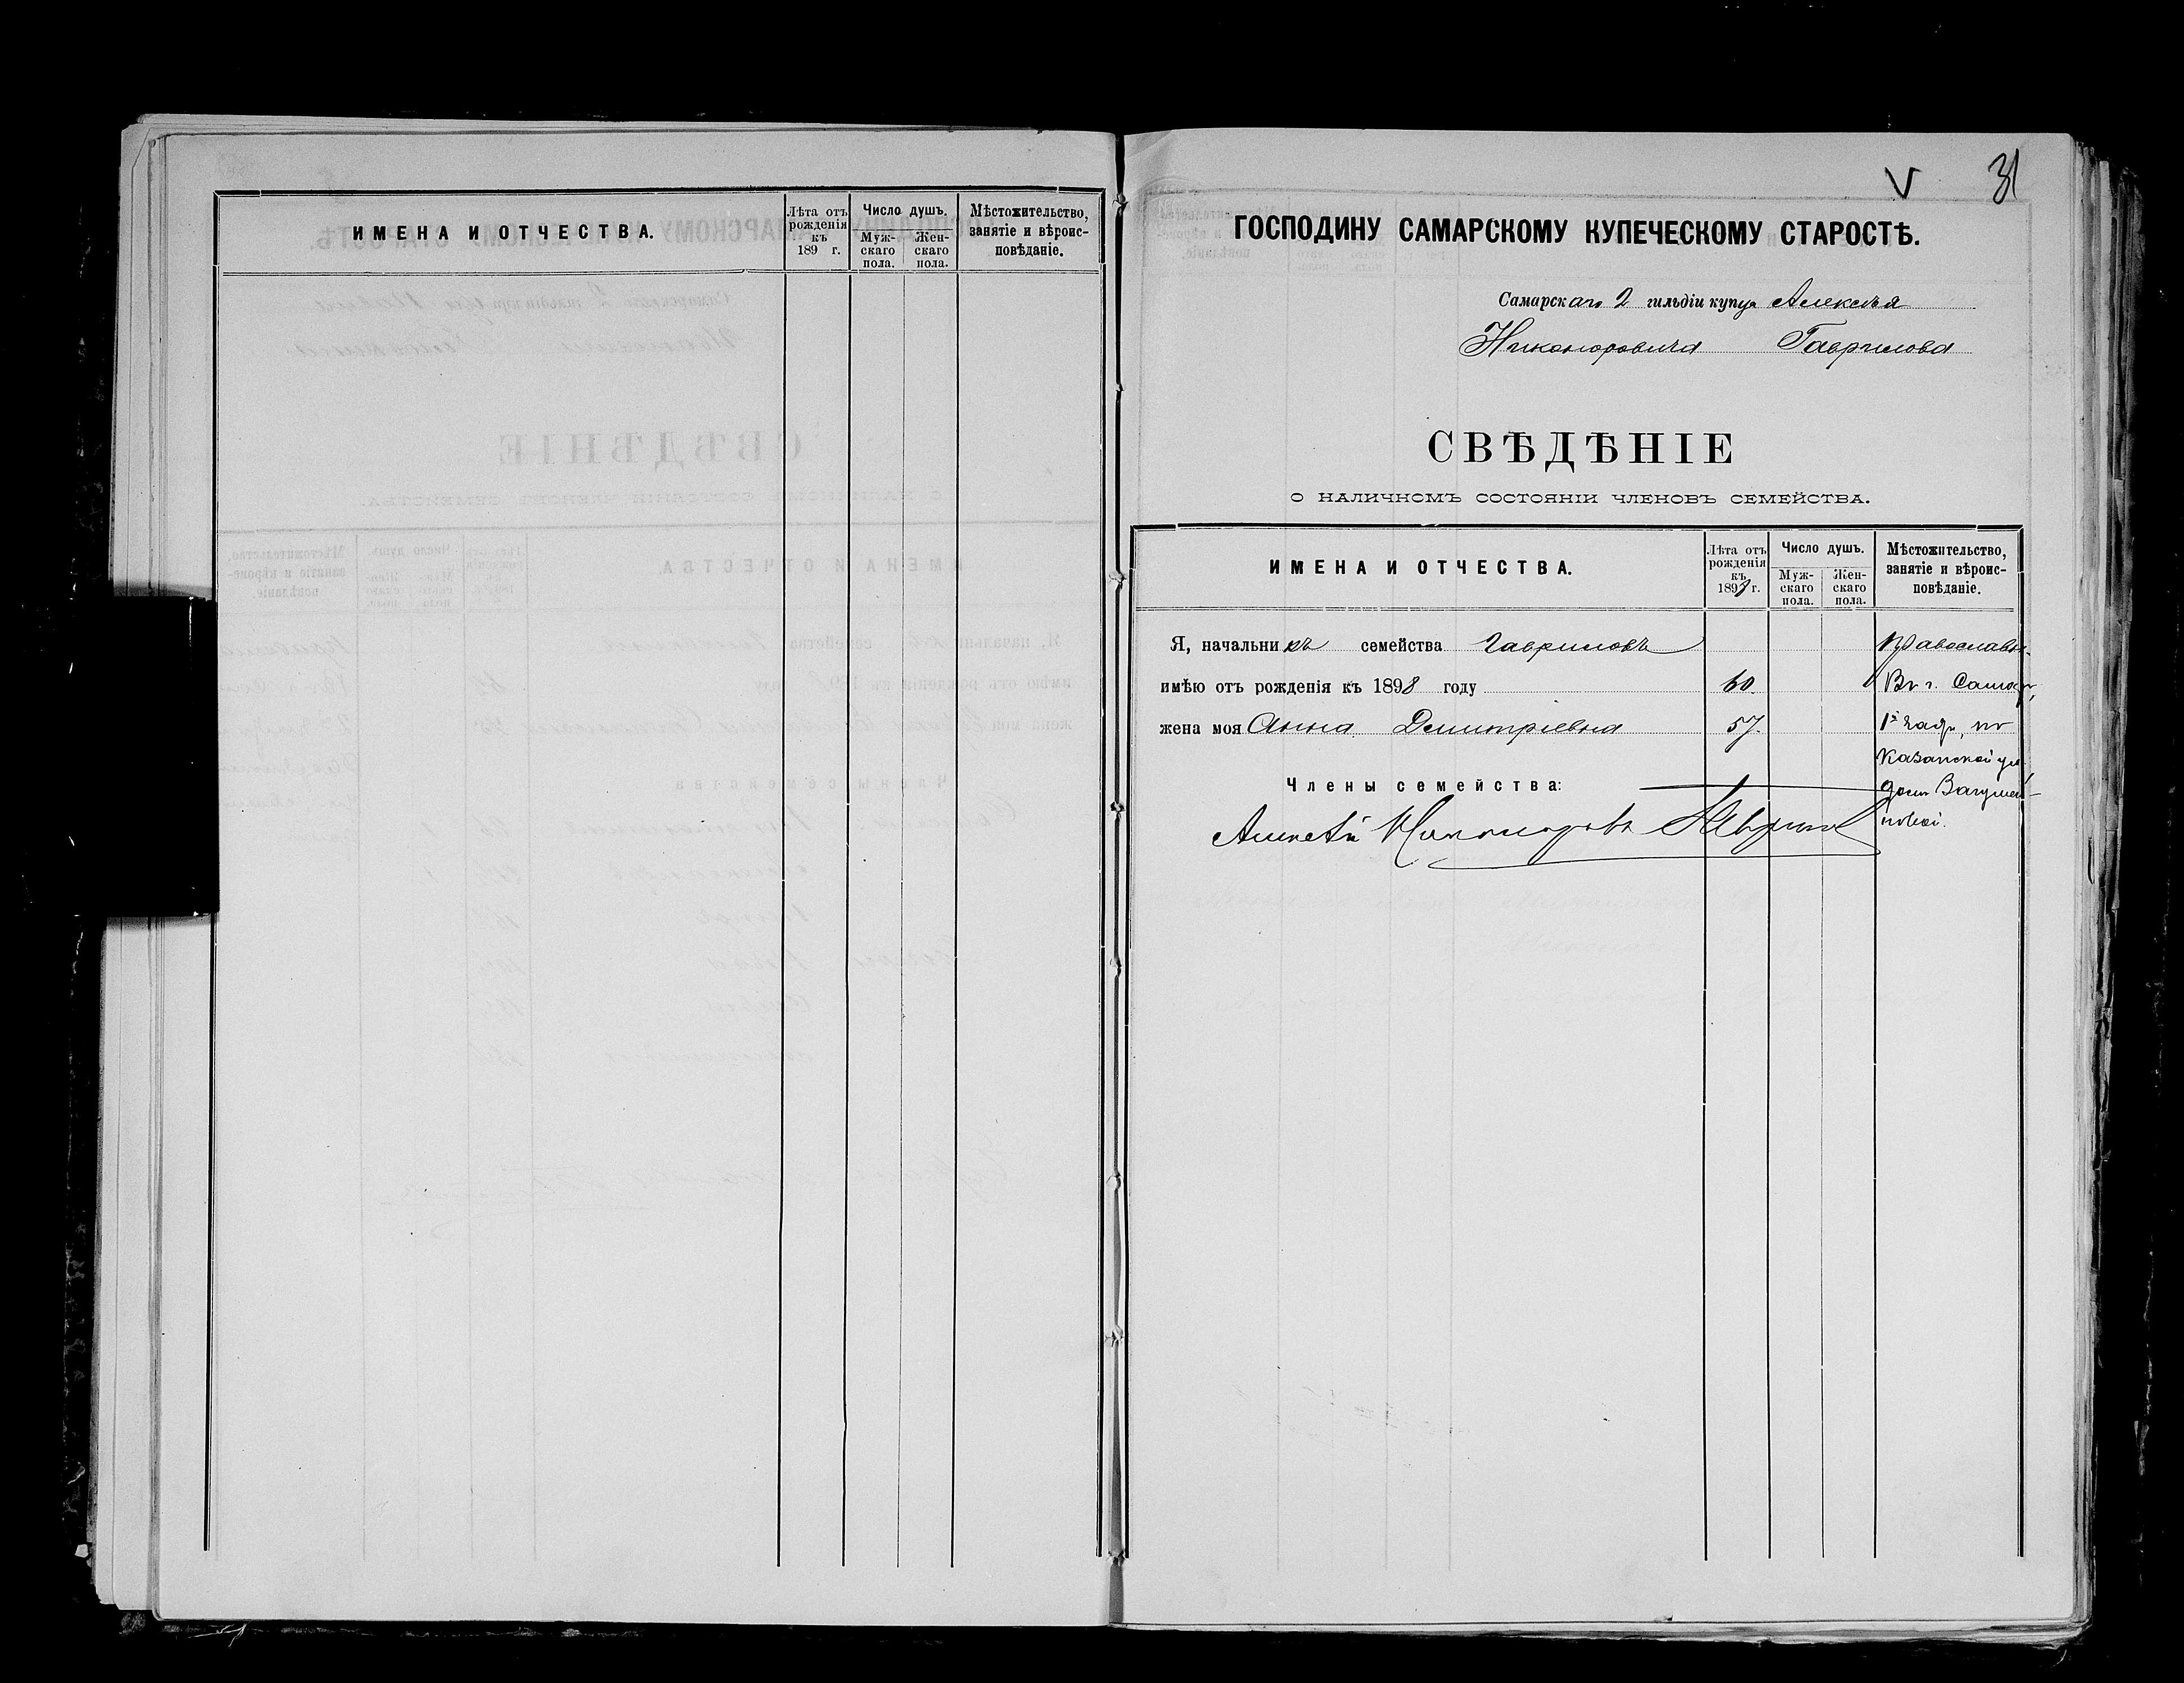 ИМЕНА И ОТЧЕСТВА.
Лѣта отъ рожденія къ 189 г.
Число душъ.
Мужскаго пола.
Женскаго пола.
Мѣстожительство, занятіе и вѣроисповѣданіе.
31
ГОСПОДИНУ САМАРСКОМУ КУПЕЧЕСКОМУ СТАРОСТѢ.
Самарскаго 2 гильдіи купца Алексѣя
Никаноровича Гаврилова
СВѢДѢНІЕ
О НАЛИЧНОМЪ СОСТОЯНІИ ЧЛЕНОВЪ СЕМЕЙСТВА.
ИМЕНА И ОТЧЕСТВА.
Лѣта отъ рожденія къ 1898 г.
Число душъ.
Мужскаго пола.
Женскаго пола.
Мѣстожительство, занятіе и вѣроисповѣданіе.
Я, начальникъ семейства Гавриловъ Православн.
имѣю отъ рожденія къ 1898 году 60. Въ г. Самарѣ,
жена моя Анна Дмитріевна 57. 1й части, по
Казанской ул.
Члены семейства: домъ
Алексѣй Никаноровъ Гавриловъ